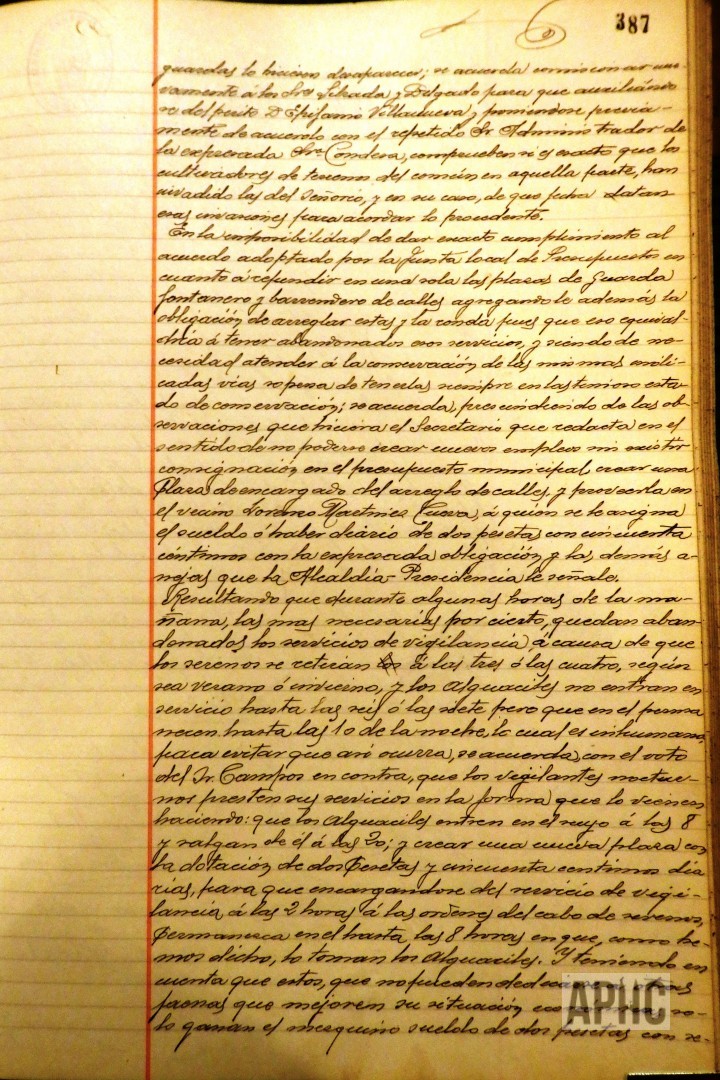 387
guardas lo hiciesen desaparecer; se acuerda comisionar nue-
vamente á los Sres Estrada y Delgado para que auxiliándo
se del perito D. Epifanio Villanueva y poniendose previa-
mente de acuerdo con el repetido Sr. Administrador de
la expresada Sra. Condesa, comprueben si es exacto que los
cultivadores de terrenos del comun en aquella parte, han
invadido las del Señorio, y en su caso, de que fecha datan
esas invasiones para acordar lo procedente.
En la imposibilidad de dar exacto cumplimiento al
acuerdo adoptado por la Junta local de Presupuestos en
cuanto á refundir en una sola las plazas de Guarda
fontanero y barrendero de calles agregandole además la
obligación de arreglar estas y la ronda pues que eso equival-
dria á tener abandonados esos servicios, y siendo de ne-
cesidad atender á la conservación de las mismas
vias so pena de tenerlas siempre en lastimoso esta-
do de conservación; se acuerda, prescindiendo de las ob-
servaciones que hiciera el Secretario que redacta en el
sentido de no poderse crear nuevos empleos sin existir
consignación en el presupuesto municipal, crear una
Plaza de encargado del arreglo de calles, y proveerla en
el vecino Lorenzo Martinez Cueva, á quien se le asigna
el sueldo ó haber diario de dos pesetas con cincuenta
céntimos con la expresada obligación y las demás a-
nejas que la Alcaldia-Presidencia le señale.
Resultando que durante algunas horas de la ma-
ñana, las mas necesarias por cierto, quedan aban-
donados los servicios de vigilancia á causa de que
los serenos se retiran á las tres ó las cuatro, según
sea verano ó invierno, y los Alguaciles no entran en
servicio hasta las seis ó las siete pero que en el perma
necen hasta las 10 de la noche, lo cual es inhumano,
para evitar que asi ocurra, se acuerda, con el voto
del Sr. Campos en contra, que los vigilantes noctur-
nos presten sus servicios en la forma que lo vienen
haciendo: que los Alguaciles entren en el suyo á las 8
y salgan de él á las 20; y crear una nueva plaza con
la dotación de dos Pesetas y cincuenta centimos dia
rias, para que encargandose del servicio de vigi-
lancia, á las 2 horas á las ordenes del cabo de serenos,
Permanezca en el hasta las 8 horas en que, como he-
mos dicho, lo toman los Alguaciles. Y teniendo en
cuenta que estos, que no pueden dedicarse á otras
faenas que mejoren su situación so-
lo ganan el mezquino sueldo de dos pesetas con se-
APHC